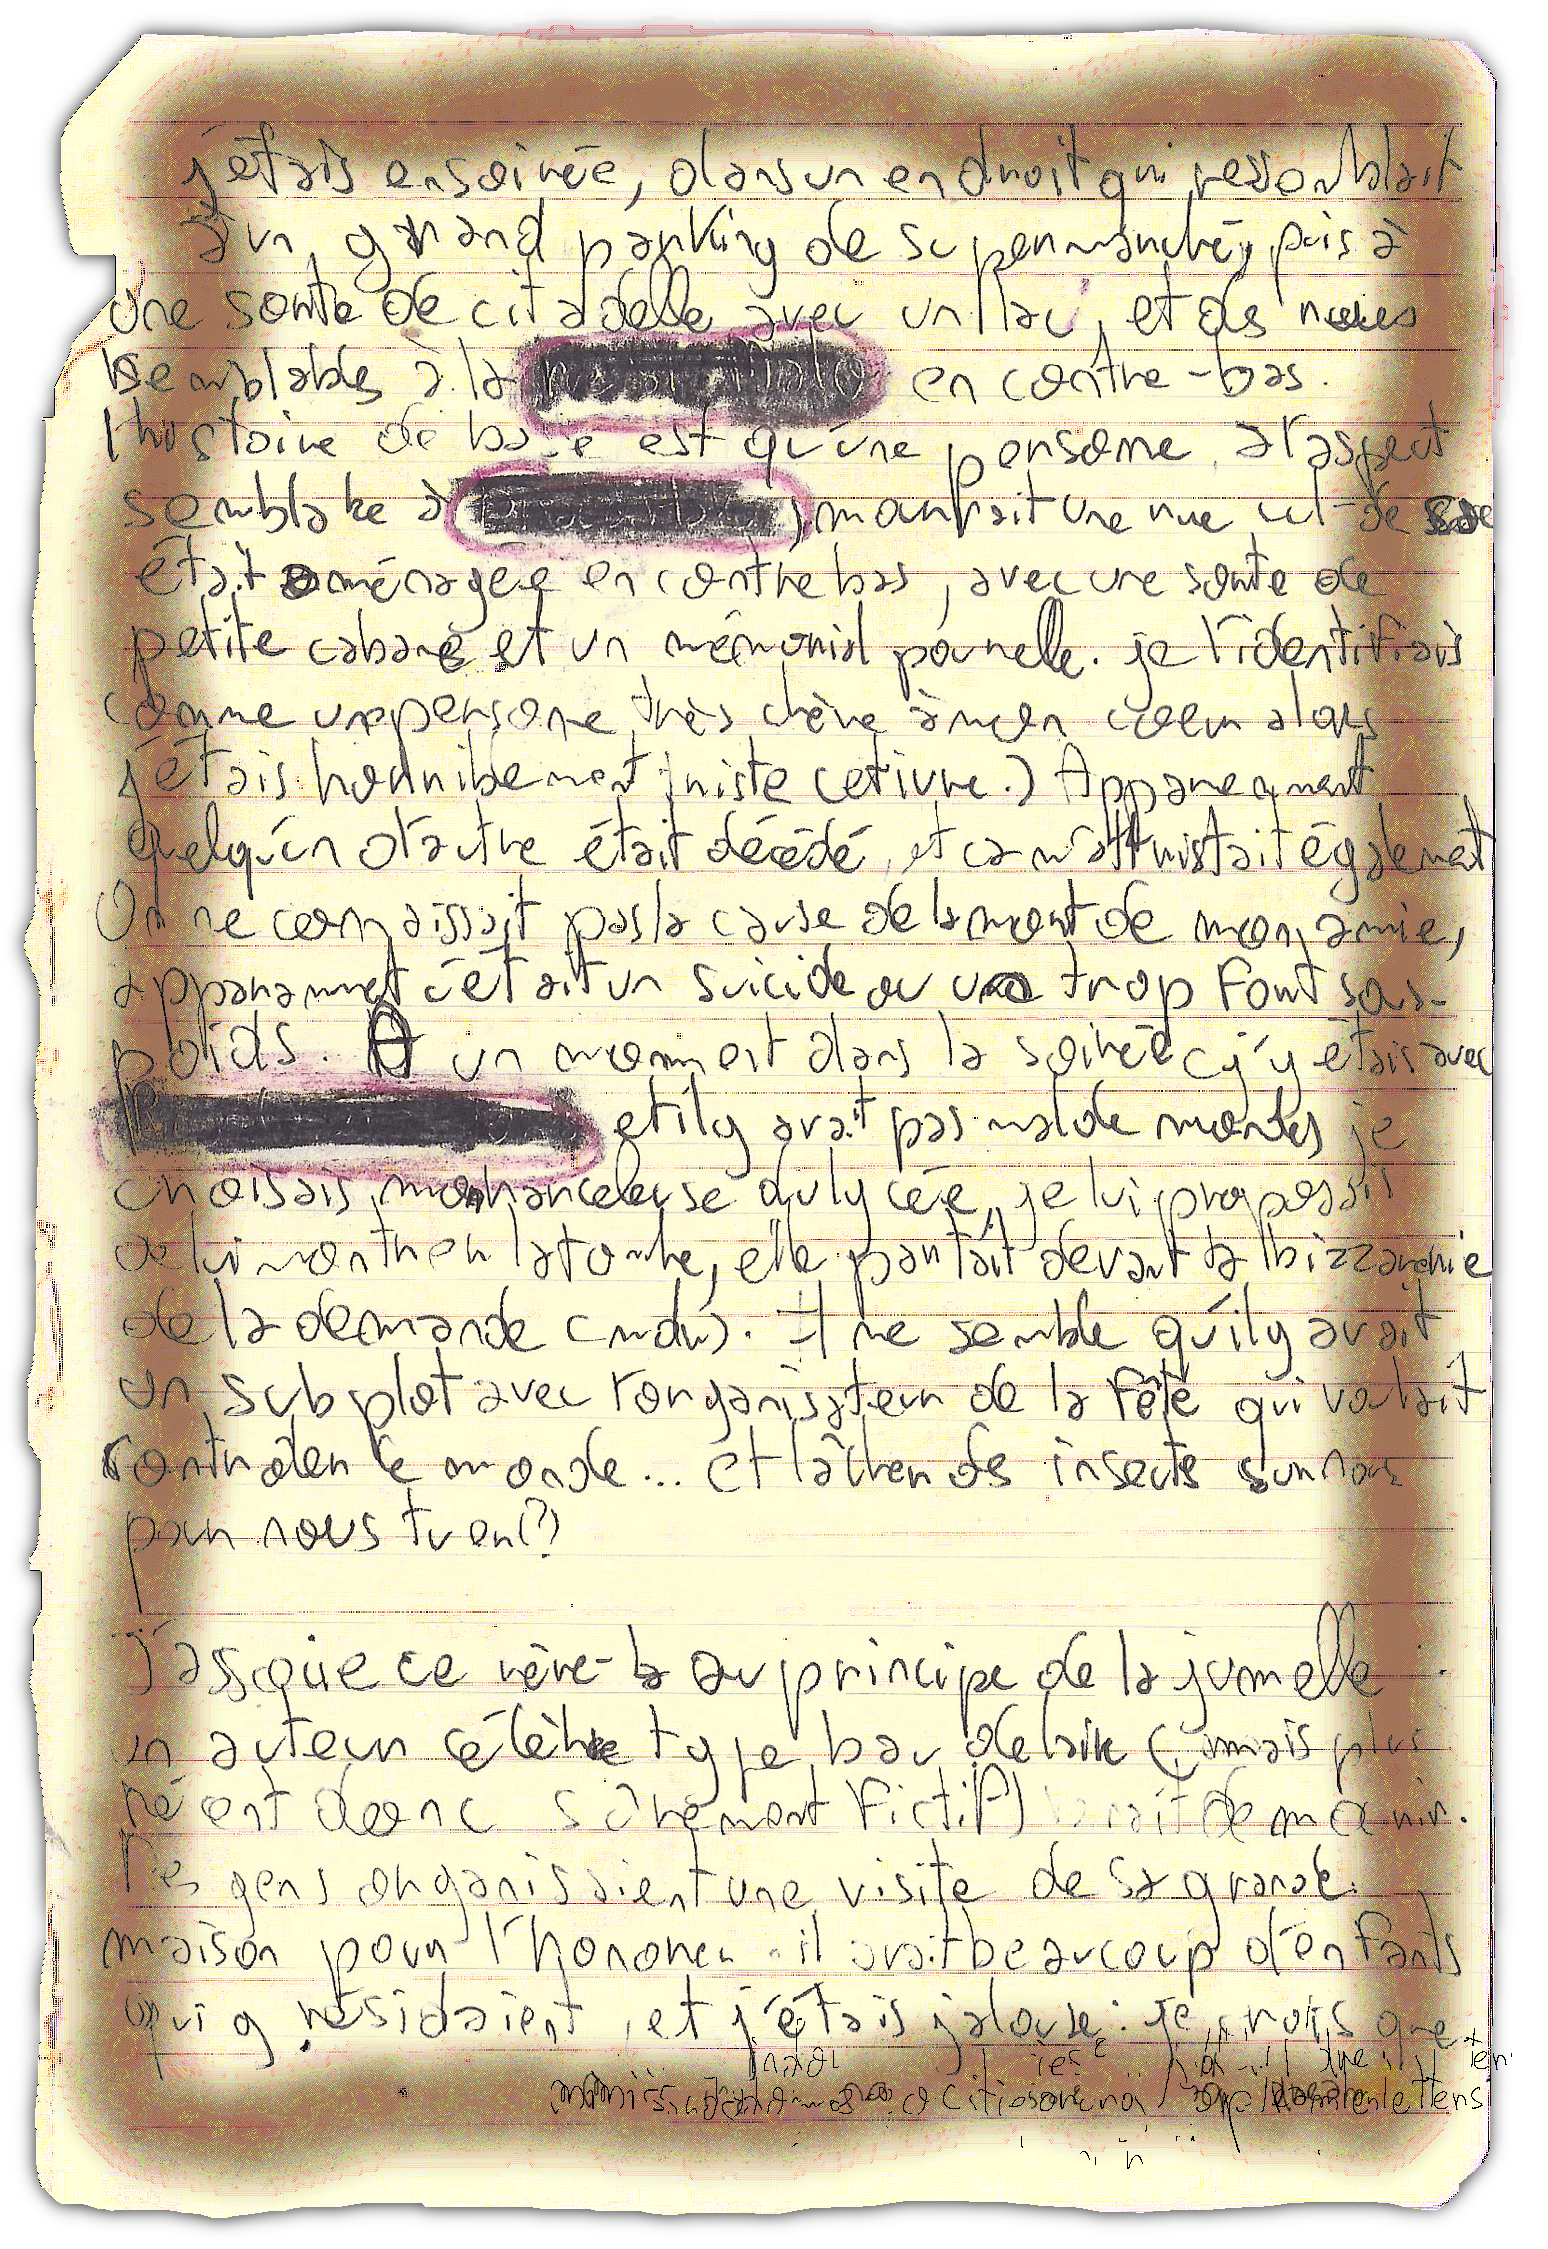 j'étais en soirée, dans un endroit qui ressemblait
à un grand parking de supermarché, puis à
une sorte de citadelle avec un lac, et des rues
semblables à la en contre-bas.
l'histoire de base est qu'une personne, à l'aspect
semblable à , mourrait une rue cul-de
était aménagée en contrebas, avec une sorte de
petite cabane et un mémorial pour elle. je l'identifiais
comme une personne très chère à mon coeur alors
j'étais horriblement triste (et ivre.) Apparemment
quelqu'un d'autre était décédé, et ça m'attristait également
On ne connaissait pas la cause de la mort de mon amie,
apparamment c'était un suicide ou un trop fort sous-
poids. A un moment dans la soirée (j'y étais avec
et il y avait pas mal de monde) je
croisais mon harceleuse du lycée, je lui proposais
de lui montrer la tombe, elle partait devant la bizzarerie
de la demande (mdr). Il me semble qu'il y avait
un subplot avec l'organisateur de la fête qui voulait
controler le monde... et lâcher des insectes sur nous
pour nous tuer(?)
J'associe ce rêve-là au principe de la jumelle
un auteur célèbre type baudelaire (mais plus
récent donc sûrement fictif) venait de mourir.
Des gens organisaient une visite de sa grande
maison pour l'honorer. il avait beaucoup d'enfants
qui y résidaient, et j'étais jalouse. je crois que